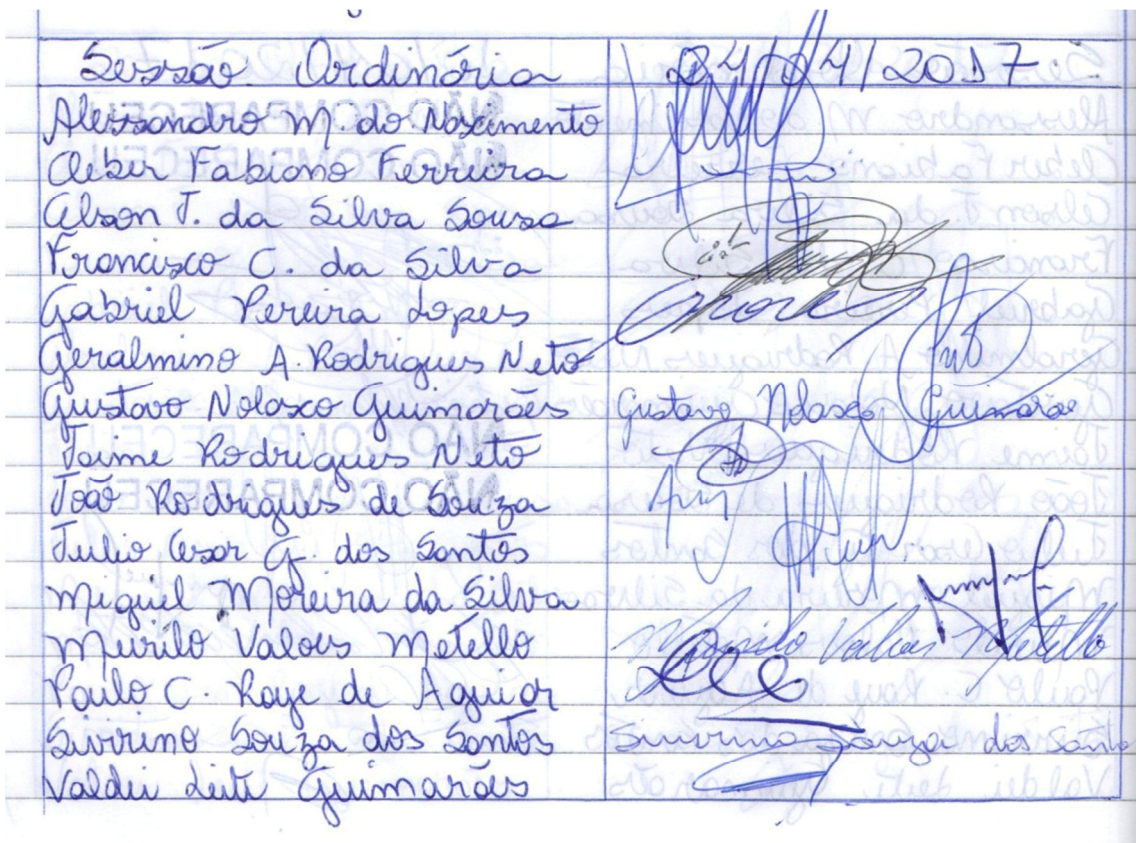 Sessão Ordinária 24/04/2017
Alessandro M. do Nascimento
Cleber Fabiano Ferreira
Celson J. da Silva Sousa
Francisco C. da Silva
Gabriel Pereira Lopes
Geralmino A. Rodrigues Neto
Gustavo Nolasco Guimarães Gustavo Nolasco Guimarães
Jaime Rodrigues Neto
João Rodrigues de Souza
Julio Cesar G. dos Santos
Miguel Moreira da Silva
Murilo Valoes Metello Murilo Valoes Metello
Paulo C. Raye de Aguiar
Severino Souza dos Santos Severino Souza dos Santos
Valdei Leite Guimarães